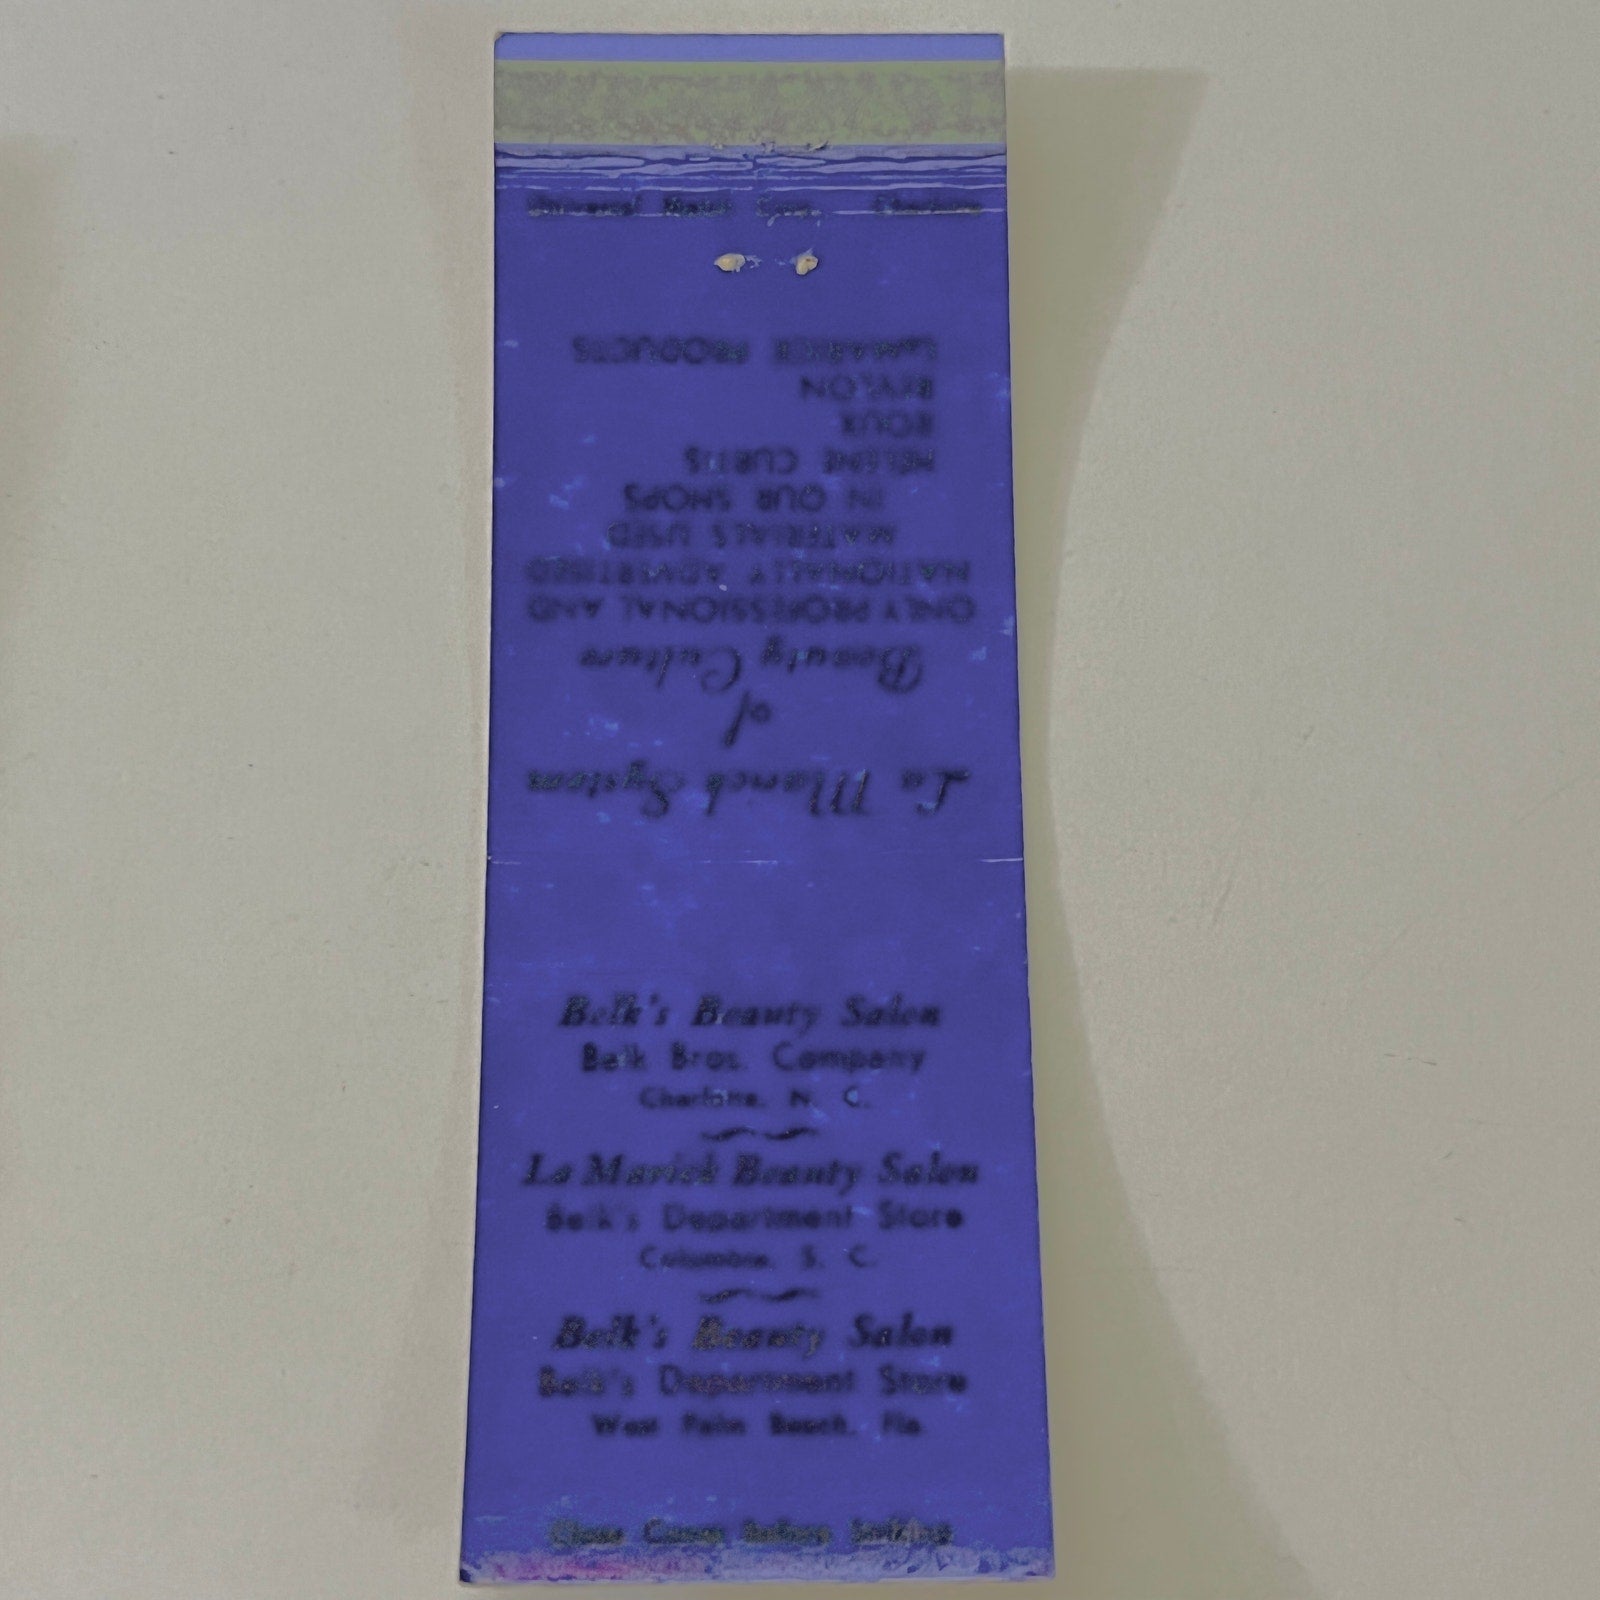 Universal Match Corp. Charlotte
La Marick System
of
Beauty Culture
ONLY PROFESSIONAL AND
NATIONALLY ADVERTISED
MATERIALS USED
IN OUR SHOPS
HELENE CURTIS
ROUX
REVLON
LaMARICK PRODUCTS
Belk's Beauty Salon
Belk Bros. Company
Charlotte, N. C.
La Marick Beauty Salon
Belk's Department Store
Columbia, S. C.
Belk's Beauty Salon
Belk's Department Store
West Palm Beach, Fla.
Close Cover Before Striking